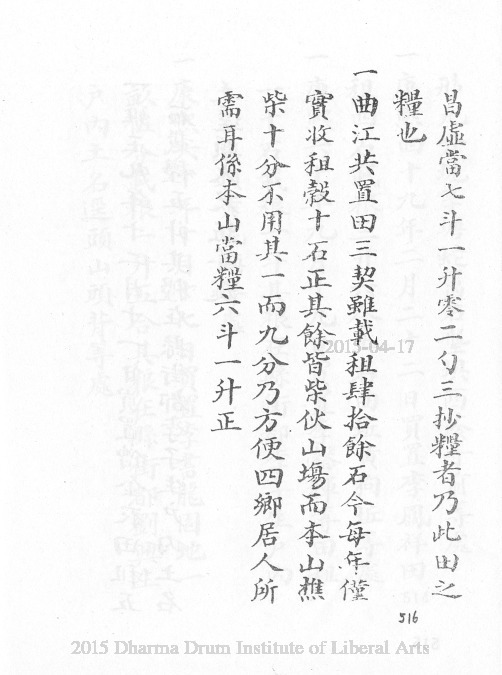 昌虛當七斗一升零二勺三抄糧者乃此田之
糧也
一曲江共置田三契雖載租肆拾餘石今每年僅
實收租穀十石正其餘皆柴伙山塲而本山樵
柴十分不用其一而九分乃方便四鄉居人所
需耳係本山當糧六斗一升正
2015-04-17
516
2015 Dharma Drum Institute of Liberal Arts